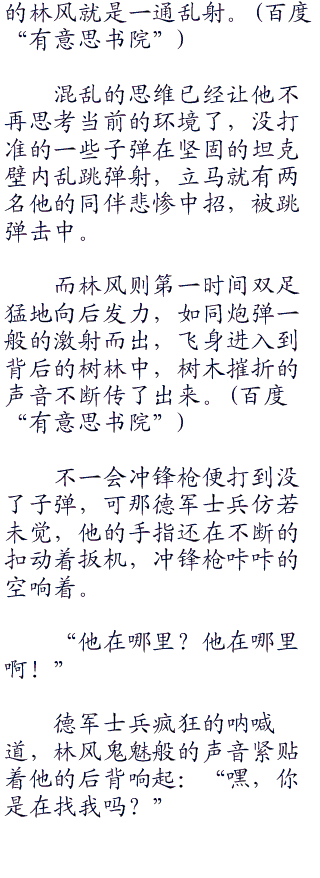 的林风就是一通乱射。(百度
“有意思书院”)
混乱的思维已经让他不
再思考当前的环境了，没打
准的一些子弹在坚固的坦克
壁内乱跳弹射，立马就有两
名他的同伴悲惨中招，被跳
弹击中。
而林风则第一时间双足
猛地向后发力，如同炮弹一
般的激射而出，飞身进入到
背后的树林中，树木摧折的
声音不断传了出来。(百度
“有意思书院”)
不一会冲锋枪便打到没
了子弹，可那德军士兵仿若
未觉，他的手指还在不断的
扣动着扳机，冲锋枪咔咔的
空响着。
“他在哪里？他在哪里
啊！”
德军士兵疯狂的呐喊
道，林风鬼魅般的声音紧贴
着他的后背响起：“嘿，你
是在找我吗？”